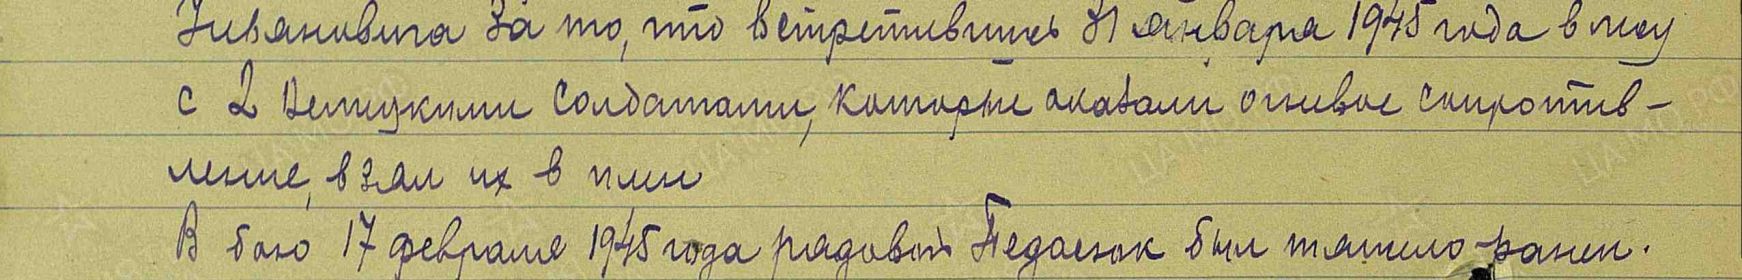 Ульяновича за то, что встретившись 31 января 1945 года в лесу
с 2 немецкими солдатами, которые оказали огневое сопротив-
ление, взял их в плен
В бою 17 февраля 1945 года рядовой был тяжело ранен.